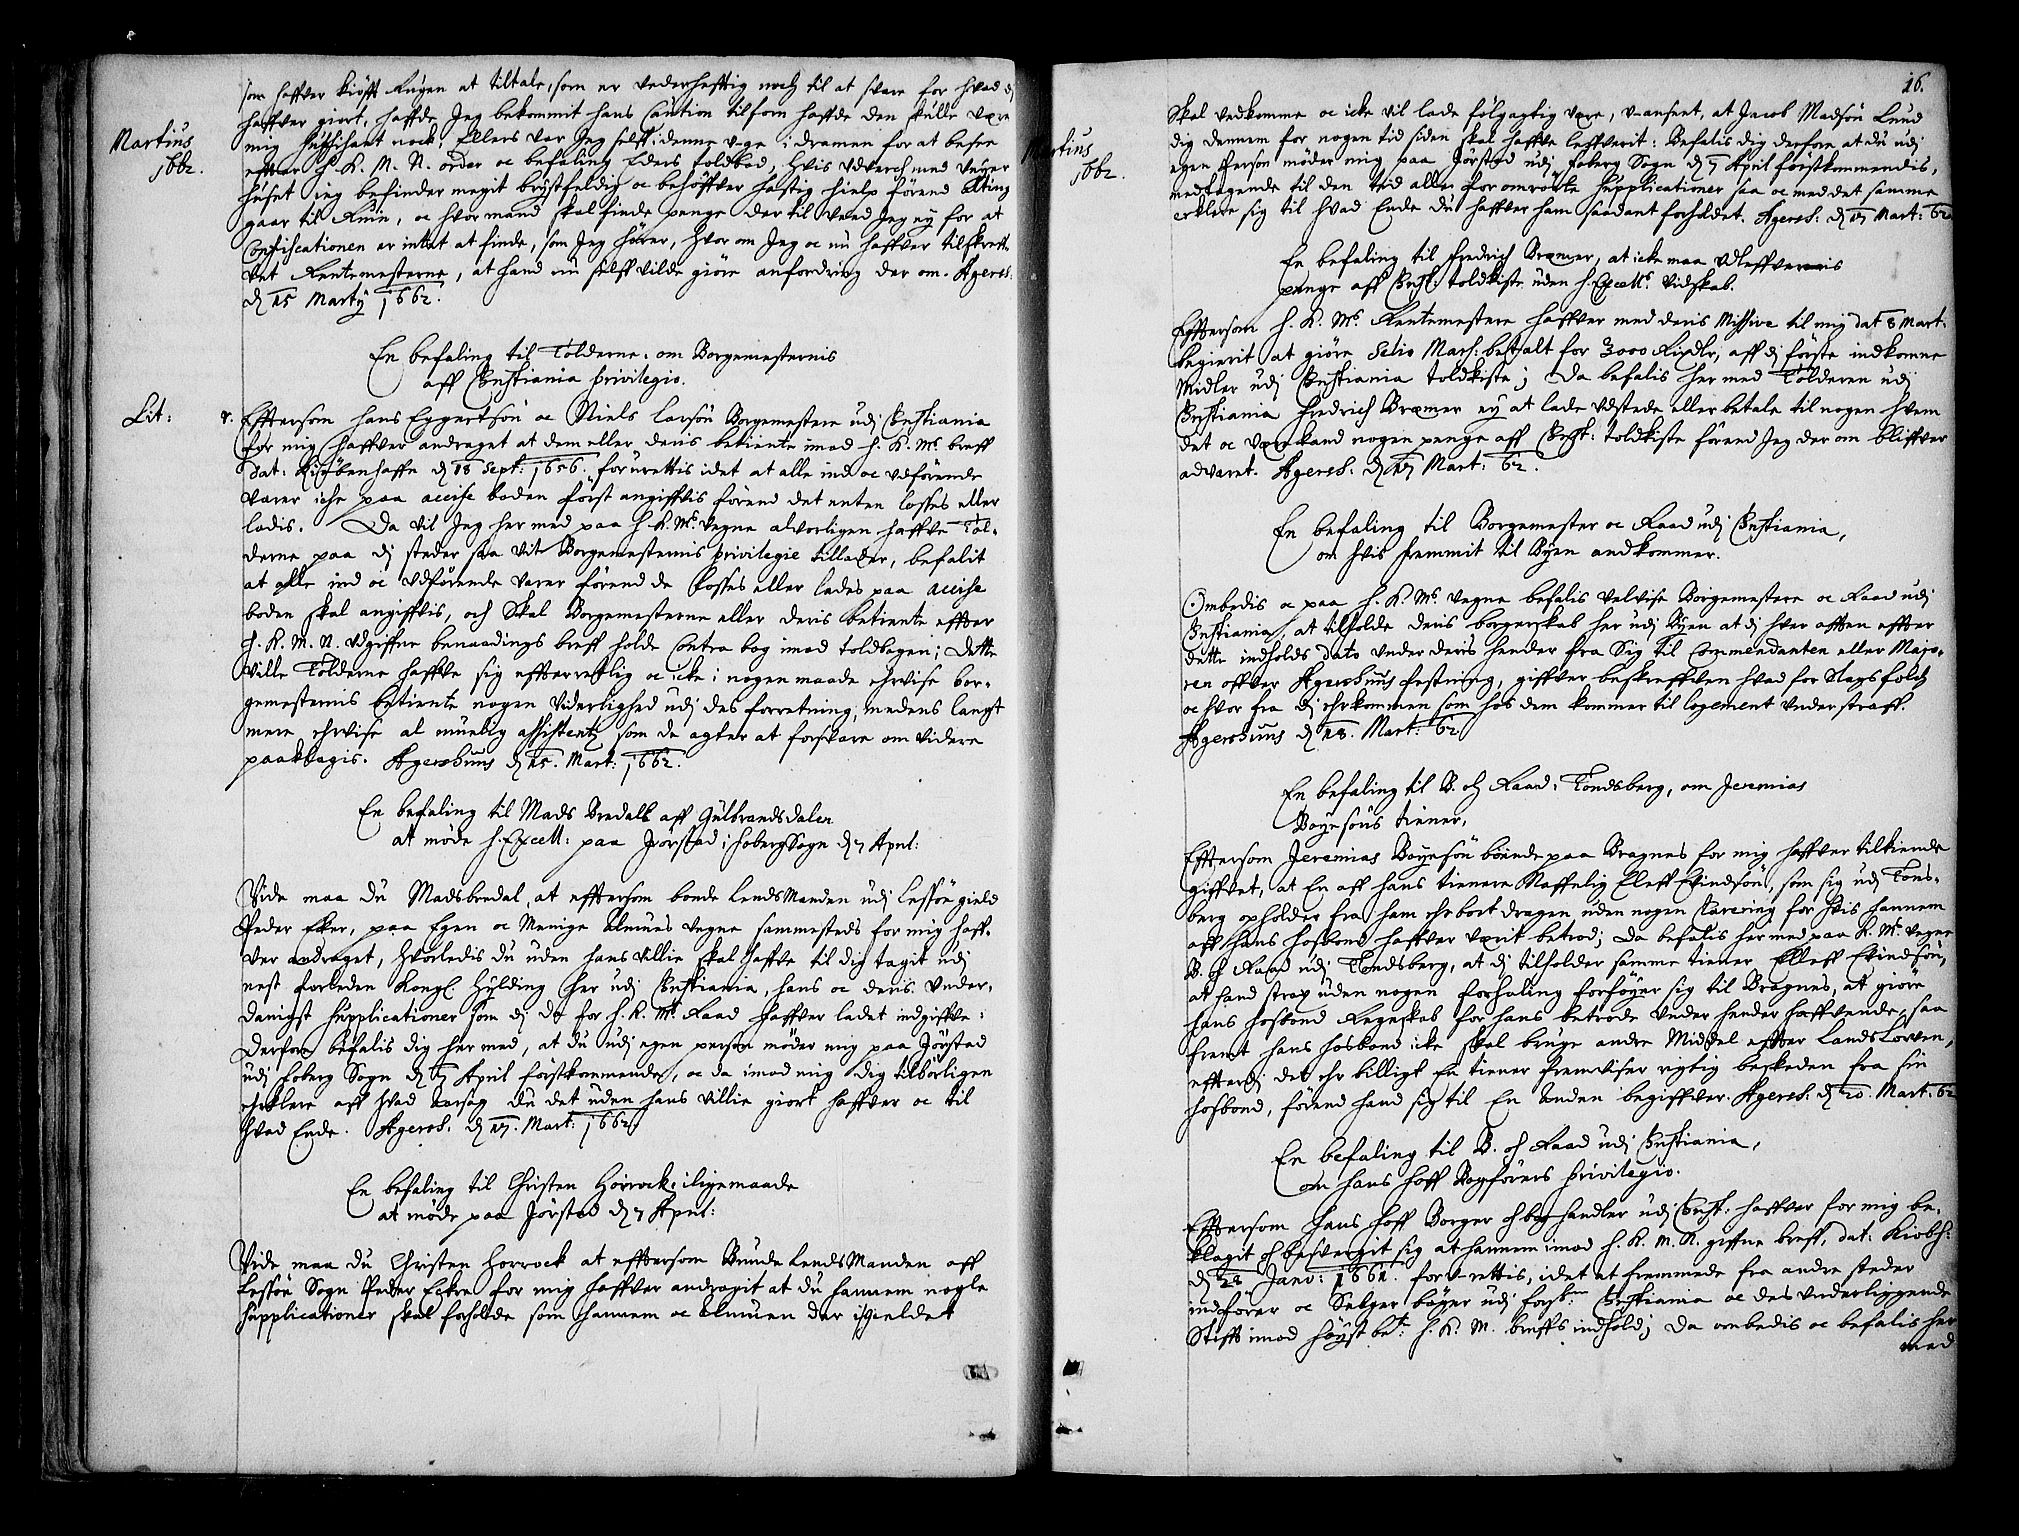 Martius
1662.
som haffver kiøfft Rugen at tiltale, som er vederhefftig noch til at svare for hvad di
haffver giort, hafde Jeg bekommit hans Caution tilforn hafde den skulle være
mig suffisant nock; Ellers var Jeg selff i denne uge i dramen for at besee
effter H. K. M. N. order oc befaling Eders toldbod, Hvis udverch med veyer
huset ieg befinder megit brystfeldig oc behøffver hastig hielp førend alting
gaar til Ruin, oc hvor mand skal finde penge der til veed Jeg ey for at
Confiscationen er intet at finde, som Jeg hører, Hvor om Jeg oc nu haffver tilskreff-
vet Rentemesterne, at hand nu self vilde giøre anfordring der om. Agersh:
d 15 Martij 1662.
En befaling til Tolderne, om Borgemesternis
aff Christiania privilegio.
Lit: r.
Effterson hans Eggertsøn oc Niels Larsøn Borgemestere udi Christiania
for mig haffver andraget at dem eller deris betiente imod H. K. Ms. breff
Dat: Kiøbenhaffn d 18 Sept: 1656. forurettis idet at alle ind oc udførende
varer iche paa accise boden først angiffvis førend det enten losses eller
ladis. Da vil Jeg her med paa H. K. Ms. vegne alvorligen haffve Tol-
derne paa di steder saa vit Borgemesternis privilegie tillader, befalit
at alle ind oc udførende varer førend de losses eller lades paa accise
boden skal angiffvis, och skal Borgemesterne eller deris betiente effter
H. K. M. N. udgiffne benaadings breff holde Contra bog imod toldbogen; Dette
ville Tolderne haffve sig effterretlig oc icke i nogen maade ehrvise bor-
gemesternis betiente nogen viderlighed udi des forretning, medens langt
mere ehrvise al muelig assistentz som de agter at forsvare om videre
paaklagis. Agershuus d 15. Mart: 1662.
En befaling til Mads Bredall aff Gulbrandsdalen
at møde H. Excell: paa Jørstad i foberg Sogn d 7 April:
Vide maa du Mads bredal, at efftersom bonde Lends Manden udi Lessøe gield
Peder Eker, paa Egen oc Menige Almues vegne sammesteds for mig haff-
ver andraget, hvorledis du uden hans villie skal haffve til dig tagit udi
nest forleden Kongl. Hylding her udi Christiania, hans oc deris under-
danigst supplicationer som di da for H. K. Ms. Raad haffver ladet indgiffve:
Derfor befalis dig her med, at du udi egen person møder mig paa Jørstad
udi foberg Sogn d 7 April førstkommende, oc da imod mig dig tilbørligen
erklere aff hvad aarsag du det uden hans villie giort haffver oc til
hvad Ende. Agersh. d 17. Mart: 1662.
En befaling til Christen Horrock, i lige maade
at møde paa Jørstad d 7 April:
Vide maa du Christen Horrock at efftersom Bunde Lends Manden aff
Lessøe Sogn Peder Eckre for mig haffver andragit at du hannem nogle
supplicationer skal forholde som hannem oc Almuen der i Gieldet
16.
Martius
1662.
Skal vedkomme oc icke vil lade følgagtig være, uanseet, at Jacob Madsøn Lund
dig dennem for nogen tid siden skal haffve leffverit: Befalis dig derfore at du udi
egen Person møder mig paa Jørstad udj foberg Sogn d 7 April førstkommendis,
medtagende til den tid alle forommrørte supplicationer saa oc med det samme
erklere sig til hvad Ende du haffver ham saadant forholdet. Agersh: d 17 Mart: 62
En befaling til fredrich Bræmer, at icke maa udleffveris
penge aff Christ: toldkiste uden H. Excells. vidskab.
Efftersom H. K. Ms. Rentemestere haffver med deris Missive til mig dat 8 Mart:
begierit at giøre Selio Mars: betalt for 3000 Rixdlr, aff di første indkomne
Midler udi Christiania toldkiste; Da befalis her med Tolderen udi
Christiania fredrich Bræmer ey at lade udstede eller betale til nogen hvem
det oc være kand nogen penge aff Christ: toldkiste førend Jeg der om bliffver
advaret. Agersh: d 17 Mart: 62.
En befaling til Borgemester oc Raad udi Christiania,
om hvis fremmit til Byen andkommer.
Ombedis oc paa H. K. Ms. vegne befalis velvise Borgemestere oc Raad udi
Christiania, at tilholde deris borgerskab her udi Byen at di hver afften effter
dette indholds dato under deris hender fra Sig til Commendanten eller Majo-
ren offver Agershuus festning, giffver beskreffven hvad for slags folch
oc hvor fra di ehr kommen som hos dem kommer til logement under straff.
Agershuus d 18. Mart: 62
En befaling til B. och Raad i Tondsberg, om Jeremias
Boyesøns tiener,
Efftersom Jeremias Boyesøn boende paa Bragnes for mig haffver tilkiende
giffvet, at En aff hans tienere Naffnlig Eleff Evindsøn, som sig udi Tons-
berg opholder fra ham ehr bort dragen uden nogen Klarering for hvis hannem
aff hans hosbond haffver værit betrod; Da befalis her med paa K. Ms. vegne
B. och Raad udi Tondsberg, at di tilholder samme tiener Elleff Evindsøn,
at hand strax uden nogen forhaling forføyer sig til Bragnes, at giøre
hans hosbond Regnskab for hans betrode under hender haffvende, saa
fremt hans hosbond icke skal bruge andre Middel effter Lands Loven,
effterdi det ehr billigt En tiener fremviser rigtig beskeden fra sin
hosbond, førend hand sig til En anden begiffver. Agersh: d 20. Mart: 62
En befaling til B. och Raad udi Christiania,
om hans hoff Bogførers privilegio.
Efftersom Hans hoff Borger och boghandler udi Christ: haffver for mig be-
klagit och besvergit sig at hannem imod H. K. M. N. giffne breff, dat: Kiøbh:
d 28 Janv: 1661. for u-rettis, idet at fremmede fra andre steder
indfører oc Selger bøger udi forskne: Christiania oc des underliggende
Stifft imod høyst bete: H. K. M. breffs indhold; Da ombedis oc befalis her
med